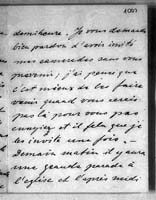 demiheure. Je vous demande
bien pardon d'avoir invité
mes camarades sans vous
prevenir, j'ai pensé que
c'est mieux de les faire
venir quand vous serais
pas là pour vous pas
ennuyer et il falu que je
les invite une fois.
Demain matin il y aura
une grande parade à
l'église et l'après midi